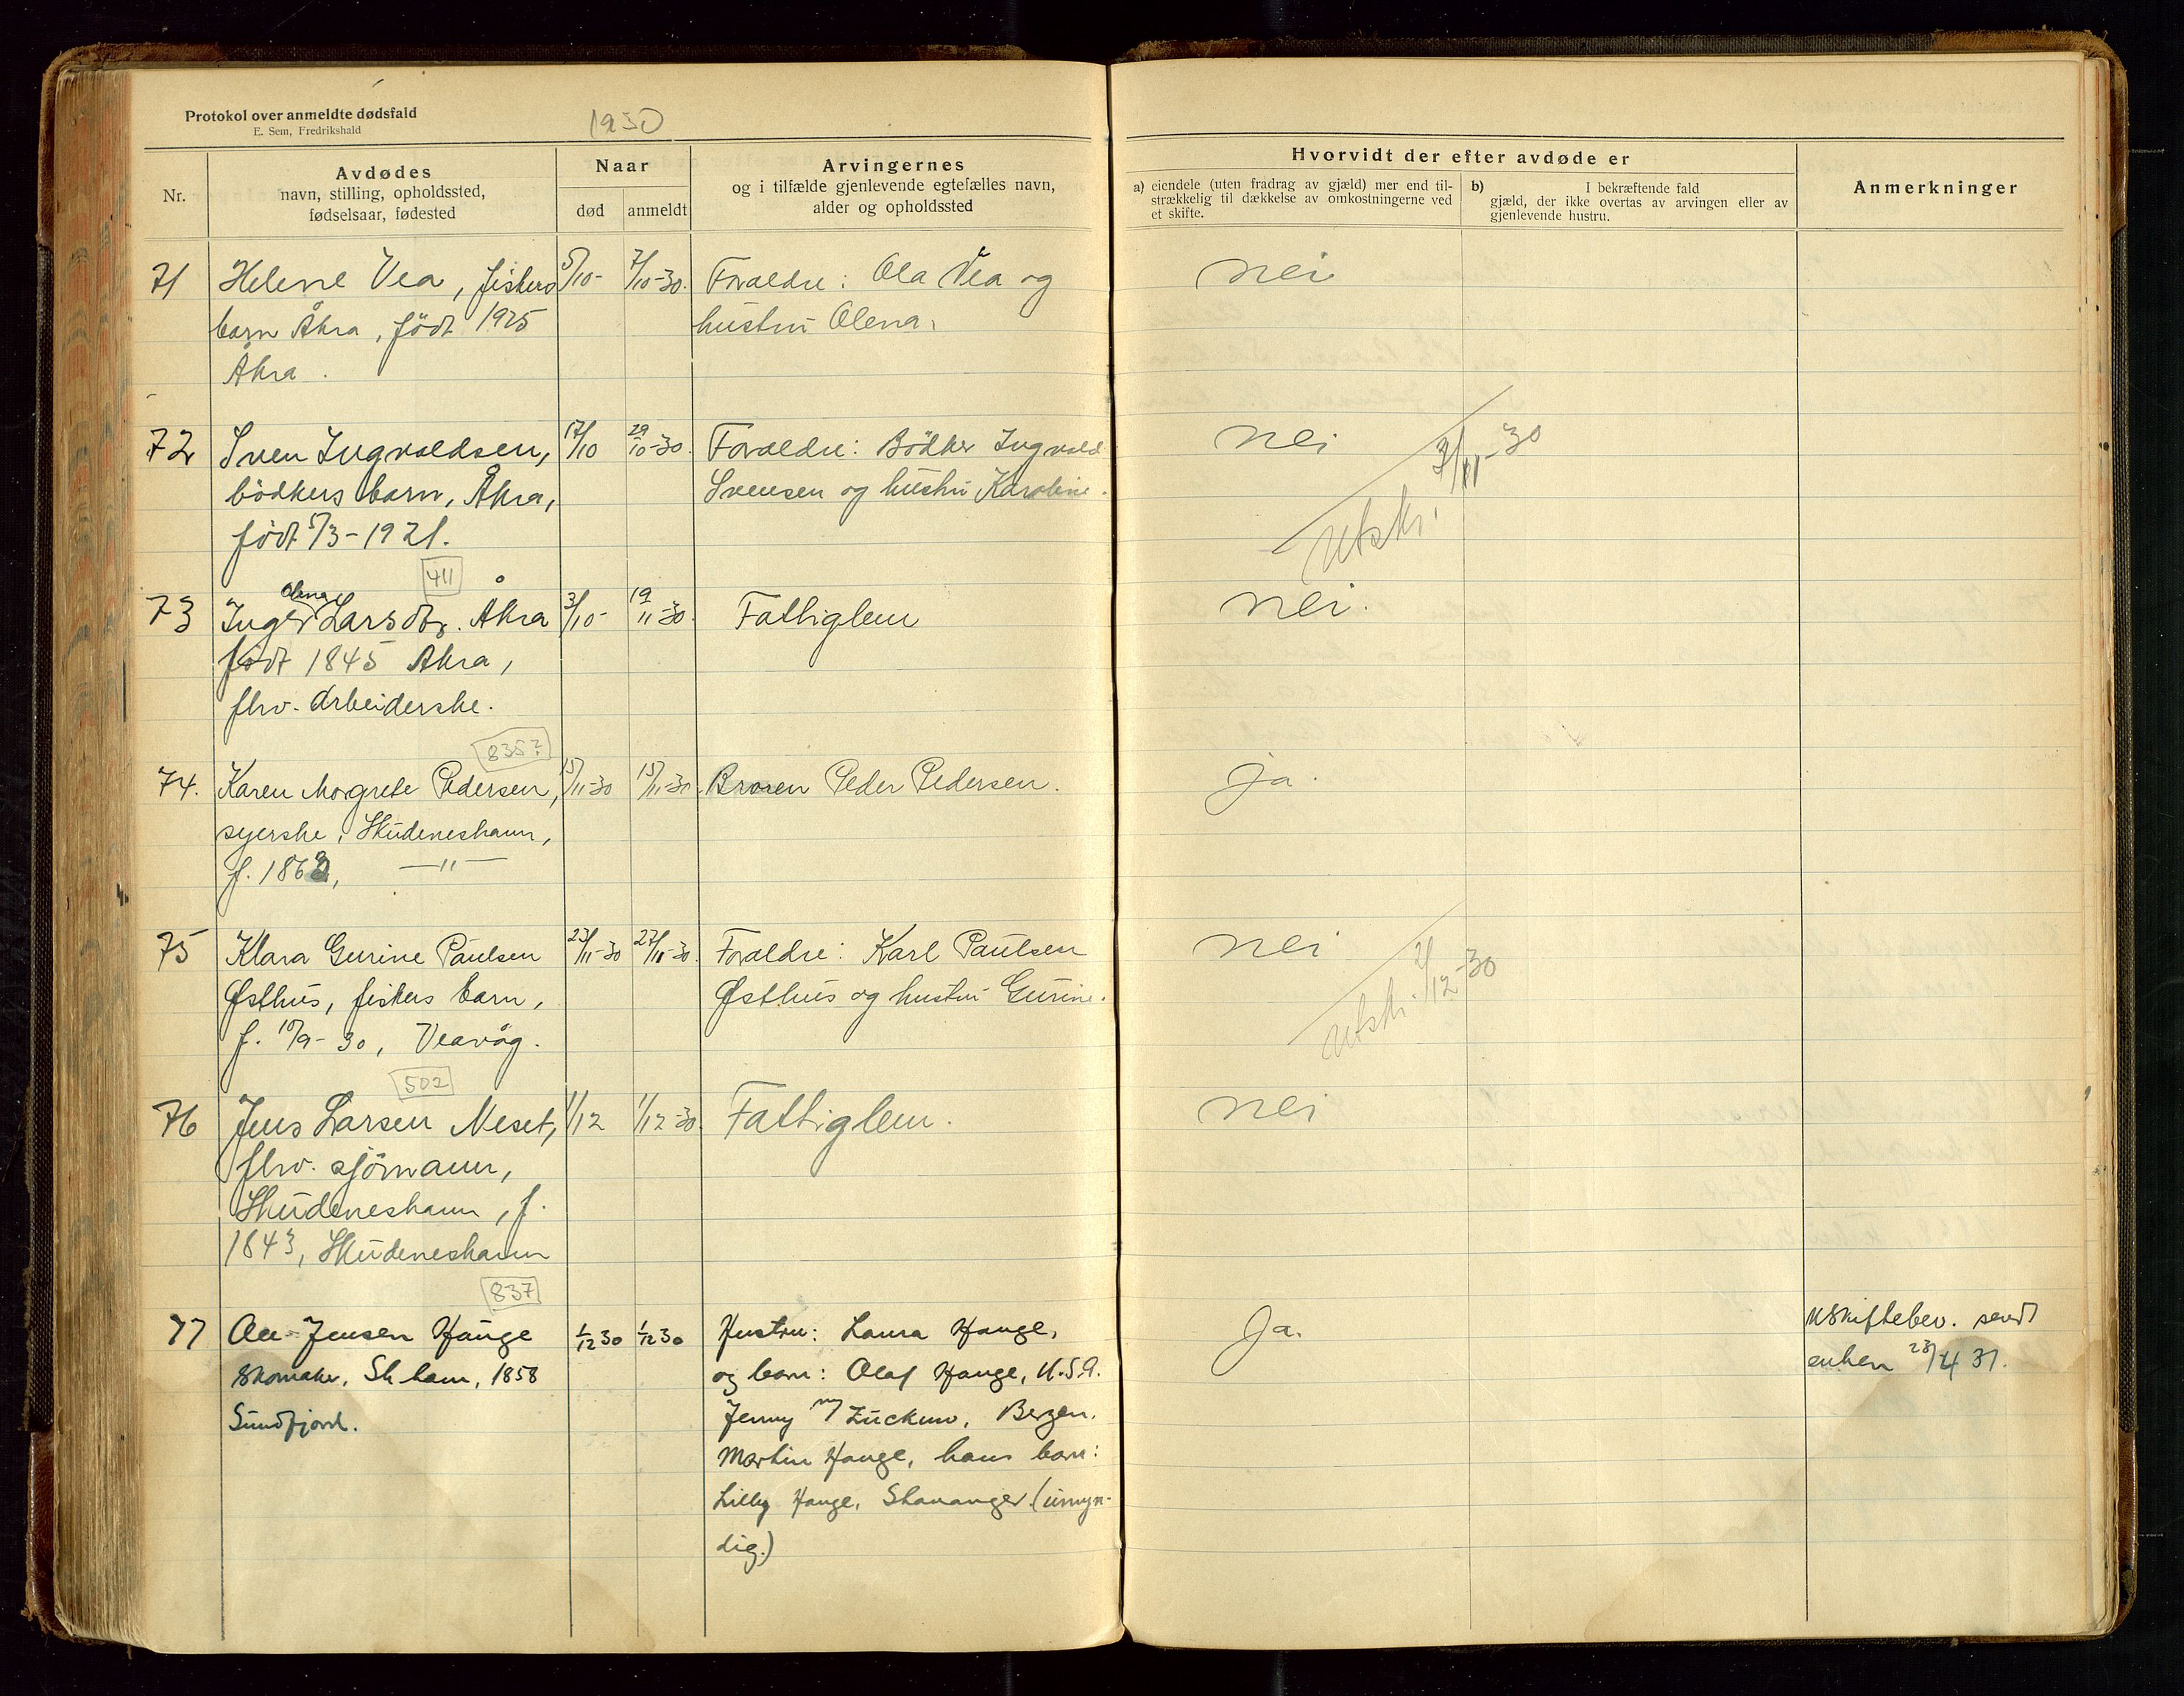 Protokol over anmeldte dødsfald
E. Sem, Fredrikshald
1930
Nr.
Avdødes
navn, stilling, opholdssted,
fødselsaar, fødested
Naar
død
anmeldt
Arvingernes
og i tilfælde gjenlevende egtefælles navn,
alder og opholdssted
Hvorvidt der efter avdøde er
a) eiendele (uten fradrag av gjæld) mer end til-
strækkelig til dækkelse av omkostningerne ved
et skifte.
b) I bekræftende fald
gjæld, der ikke overtas av arvingen eller av
gjenlevende hustru.
Anmerkninger
71 Helene Vea, fiskers 5/10- 7/10-30. Foraldre: Ola Vea og nei
barn Åkra, födt 1925 hustru Olena.
Åkra.
72 Sven Ingvaldsen, 17/10 29/10-30. Foraldre: Bödker Ingvald nei
bödkers barn, Åkra, Svensen og hustru Karoline.
födt 5/3-1921.
utskr. 3/11-30
411
Olena
73 Inger Larsdtr. Åkra 3/10- 19/11-30. Fattiglem nei.
födt 1845 Åkra,
fhv. arbeiderske.
835?
74. Karen Margrete Pedersen, 15/11-30 15/11-30. Broren Peder Pedersen. ja.
syerske, Skudeneshavn,
f. 186 , —"—
75 Klara Gurine Paulsen 23/11-30 27/11-30. Foraldre: Karl Paulsen nei
Østhus, fiskers barn, Østhus og hustru Gurine.
f. 10/9-30, Veavåg.
utskr. 2/12-30
502
76 Jens Larsen Neset, 1/12 1/12-30. Fattiglem. nei
fhv. sjömann,
Skudeneshavn, f.
1843, Skudeneshavn
837
77 Ole Jensen Hauge 1/12 30 1/12 30 Hustru: Laura Hauge, Ja. Uskiftebev. sendt
Skomaker, Sk havn, 1858 og barn: Olaf Hauge, U.S.A. enken 23/4 31.
Sundfjord. Jenny Zuckow, Bergen.
Martin Hauge, hans barn:
Lilly Hauge, Stavanger (umyn-
dig.)